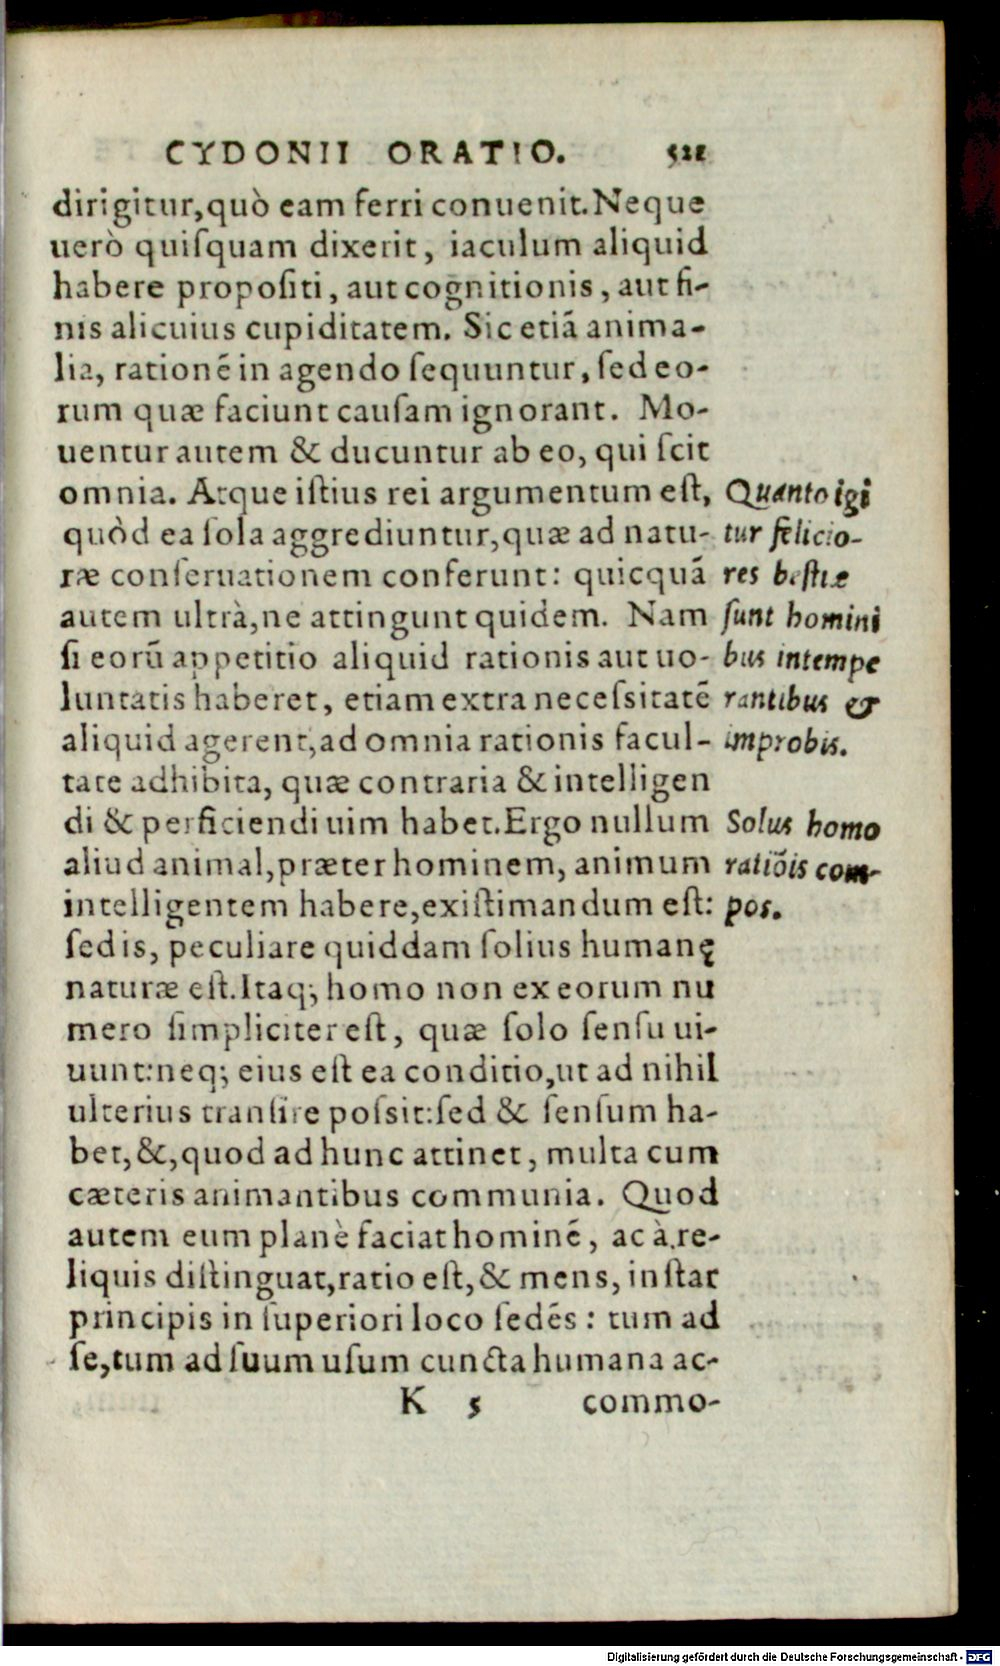 CYDONII ORATIO. 521
dirigitur,quò eam ferri conuenit.Neque
uerò quiſquam dixerit, iaculum aliquid
habere propoſiti, aut cognitionis, aut fi-
nis alicuius cupiditatem. Sic etiā anima-
lia, rationē in agendo ſequuntur, ſed eo-
rum quæ faciunt cauſam ignorant. Mo-
uentur autem & ducuntur ab eo, qui ſcit
omnia. Atque iſtius rei argumentum eſt,
quòd ea ſola aggrediuntur,quæ ad natu-
ræ conſeruationem conferunt: quicquā
autem ultrà,ne attingunt quidem. Nam
ſi eorū appetitio aliquid rationis aut uo-
luntatis haberet, etiam extra neceſsitatē
aliquid agerent,ad omnia rationis facul-
tate adhibita, quæ contraria & intelligen
di & perficiendi uim habet.Ergo nullum
aliud animal,præter hominem, animum
intelligentem habere,exiſtimandum eſt:
ſed is, peculiare quiddam ſolius humanę
naturæ eſt.Itaq; homo non ex eorum nu
mero ſimpliciter eſt, quæ ſolo ſenſu ui-
uunt:neq; eius eſt ea conditio,ut ad nihil
ulterius tranſire poſsit:ſed & ſenſum ha-
bet,&,quod ad hunc attinet, multa cum
cæteris animantibus communia. Quod
autem eum planè faciat hominē, ac à re-
liquis diſtinguat,ratio eſt,& mens, inſtar
principis in ſuperiori loco ſedēs: tum ad
ſe,tum ad ſuum uſum cuncta humana ac-
K 5 commo-
Quanto igi
tur felicio-
res beſtiæ
ſunt homini
bus intempe
rantibus &
improbis.
Solus homo
ratiōis com-
pos.
Digitalisierung gefördert durch die Deutsche Forschungsgemeinschaft - DFG